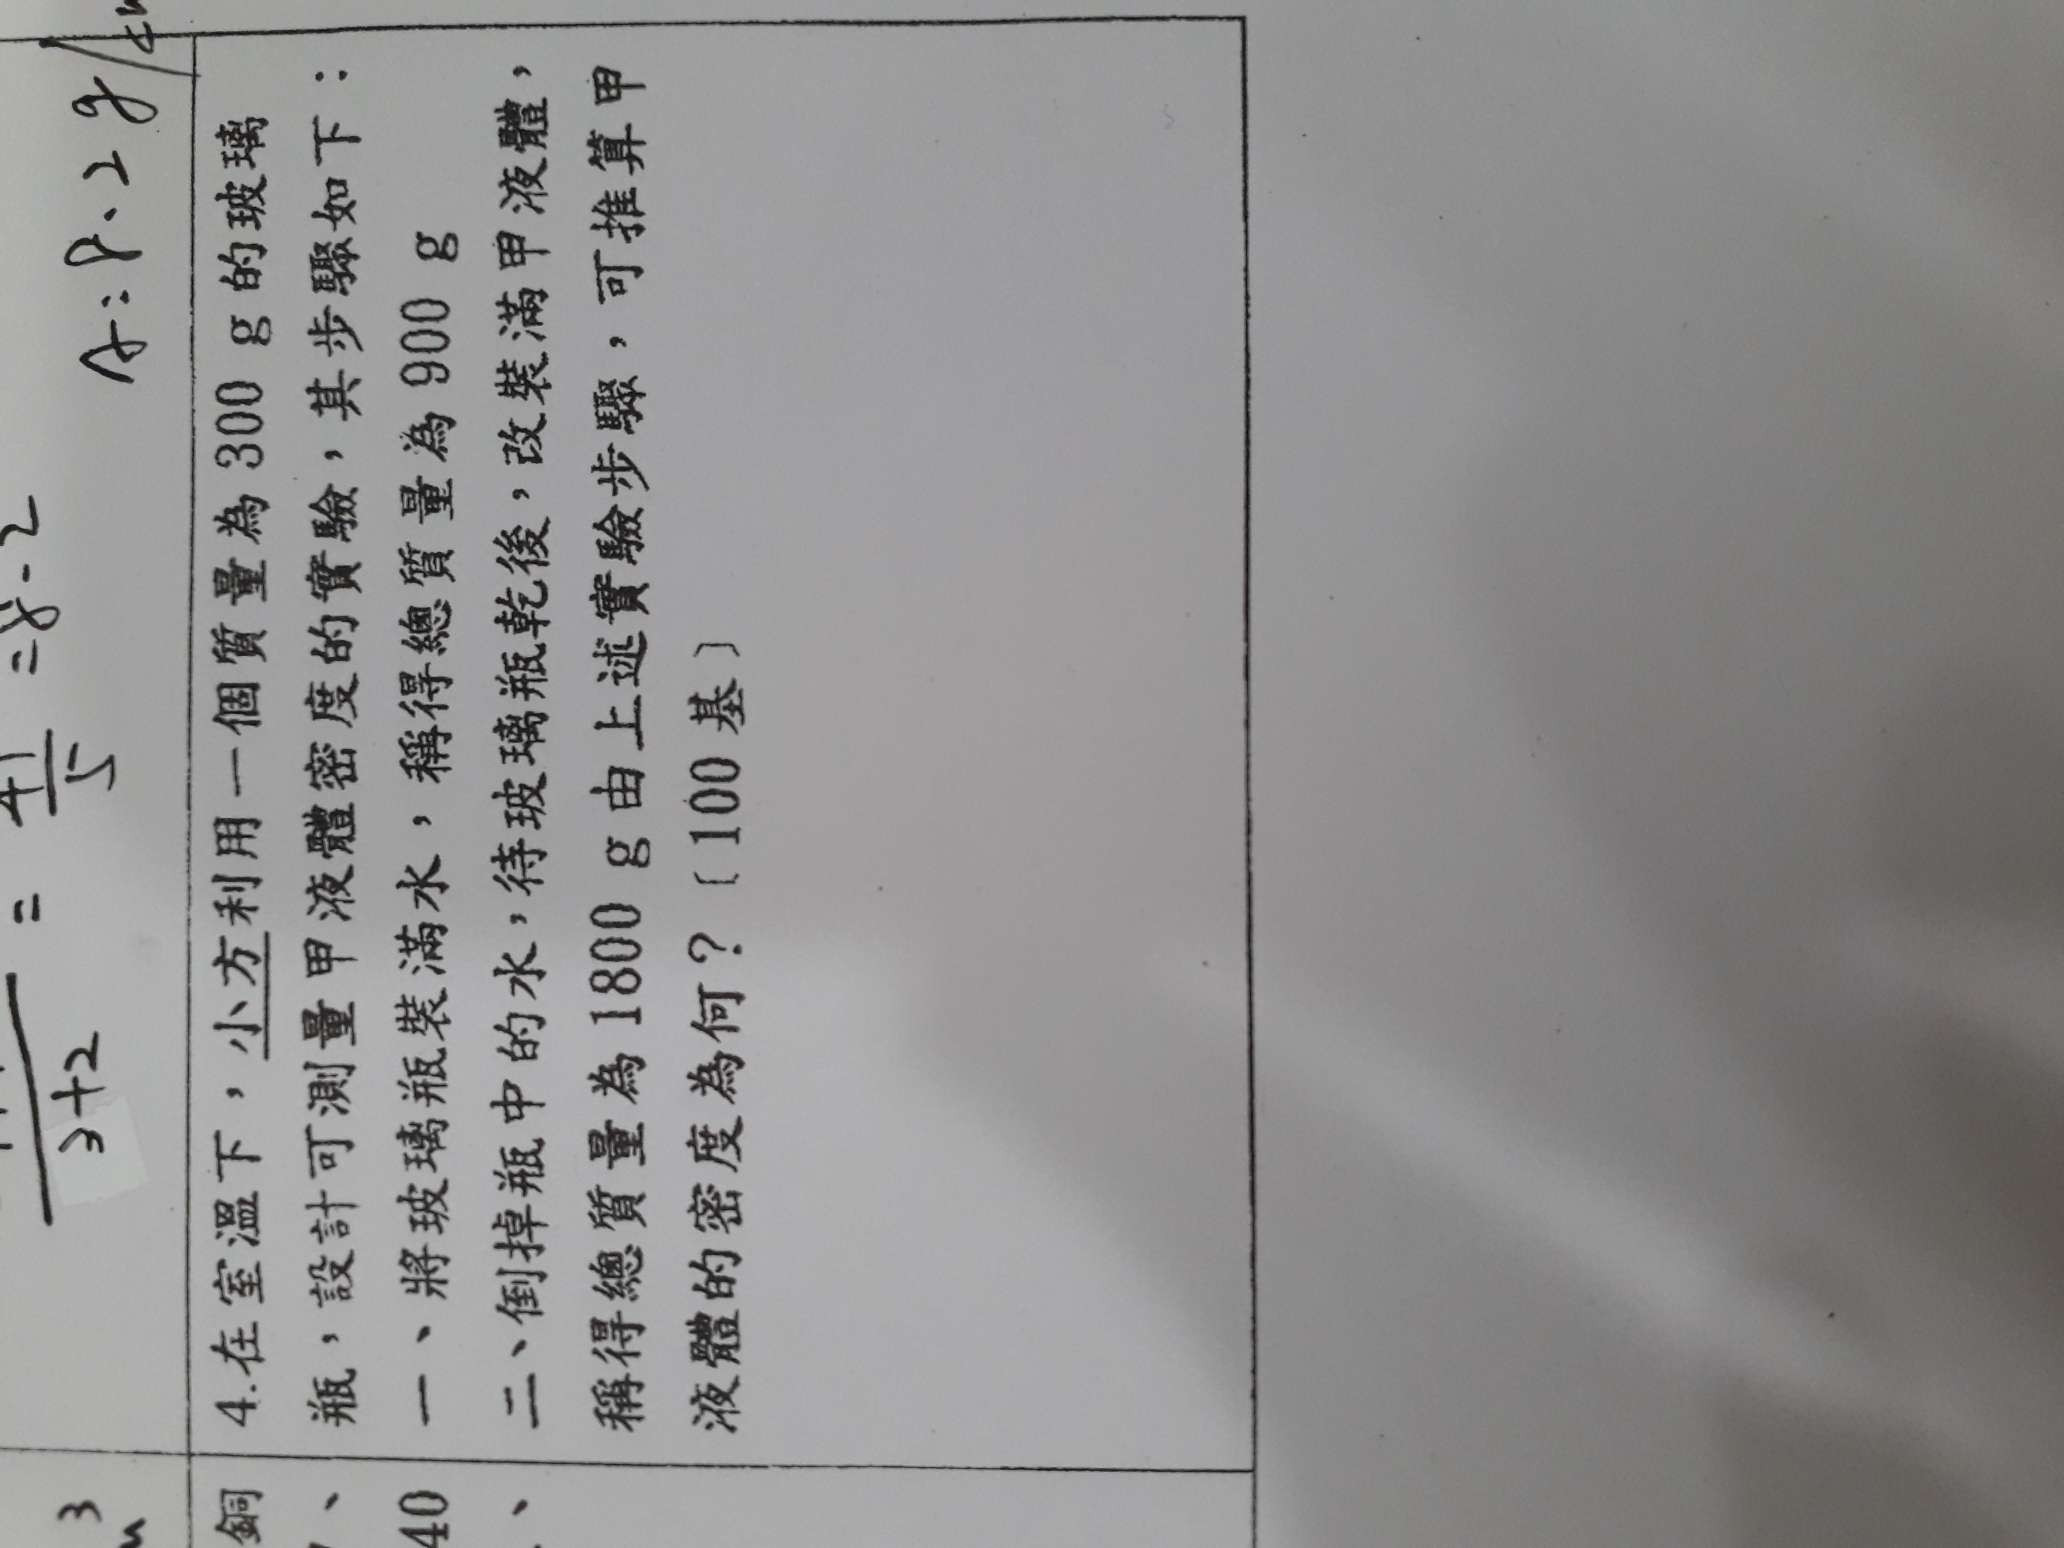 3+2
=
41
5
=8.2
A:8.2g/
4.在室溫下,小方利用一個質量為300 g的玻璃
瓶,設計可測量甲液體密度的實驗,其步驟如下:
一、將玻璃瓶裝滿水,稱得總質量為900 g
二、倒掉瓶中的水,待玻璃瓶乾後,改裝滿甲液體,
稱得總質量為1800 g由上述實驗步驟,可推算甲
液體的密度為何?〔100基〕
3
銅
、
40
、